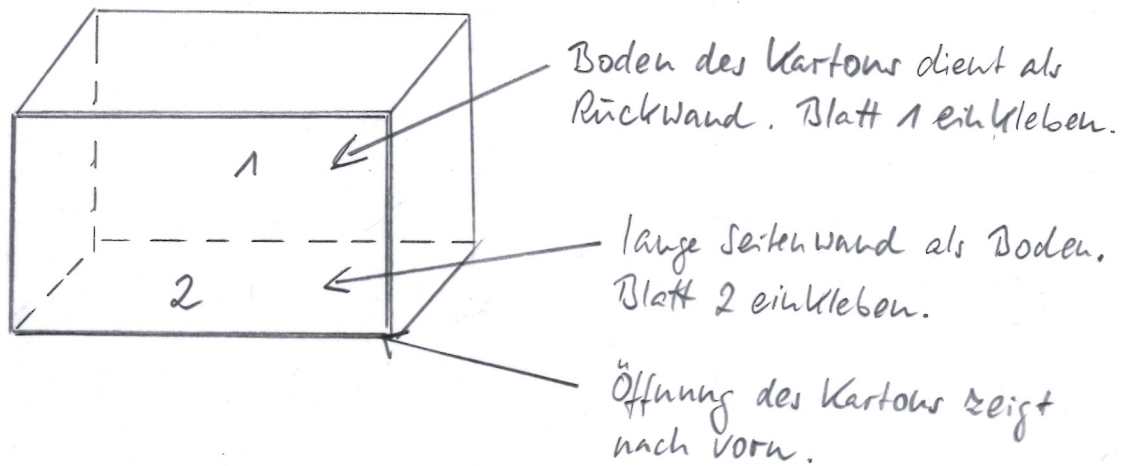 Boden des Kartons dient als
Rückwand. Blatt 1 einkleben.
1
lange Seitenwand als Boden.
Blatt 2 einkleben.
2
Öffnung des Kartons zeigt
nach vorn.